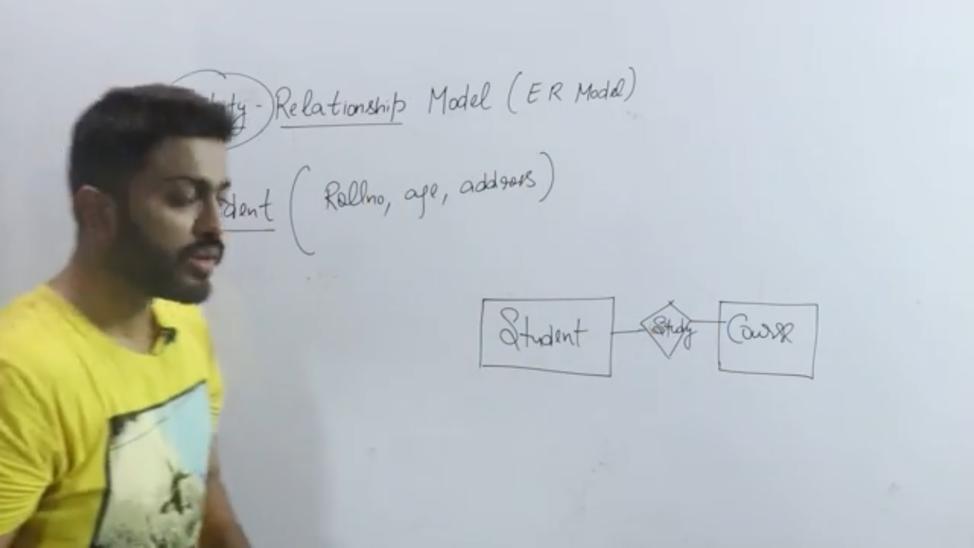 Relationship Model (ER Model)
(Rollno, age, address)
Student Study Course